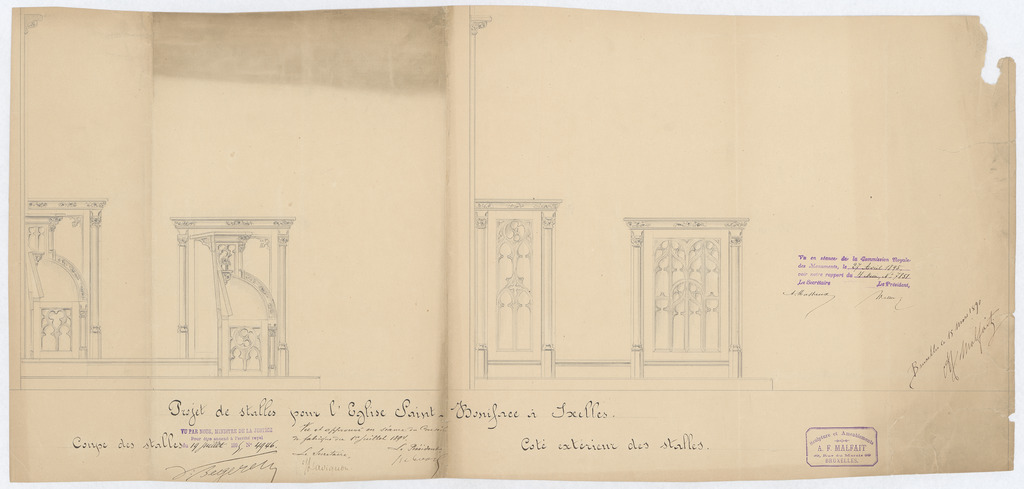 Projet de stalles pour l'Eglise Saint-Boniface à Ixelles.
Coupe des stalles
VU PAR NOUS, MINISTRE DE LA JUSTICE
Pour être annexé à l'arrêté royal
du 19 juillet 1895 Nº
Vu et approuvé en séance du Conseil
de fabrique du 1er juillet
Le Secrétaire,
Le Président
Coté extérieur des stalles.
Vu en séance de la Commission Royale
des Monuments, le
suit notre rapport du
Le Secrétaire
Le Président,
Bruxelles le 18 mars
A F Malfait
Sculpture et Ameublements
A. F. MALFAIT
BRUXELLES